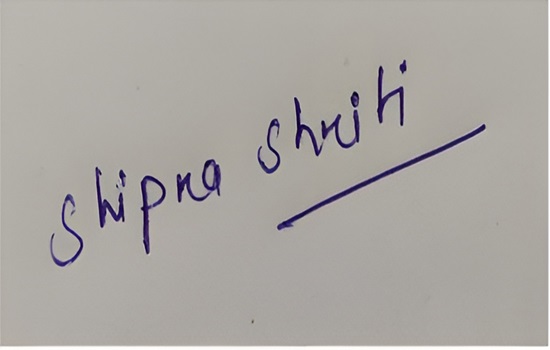 Shipra Shriti